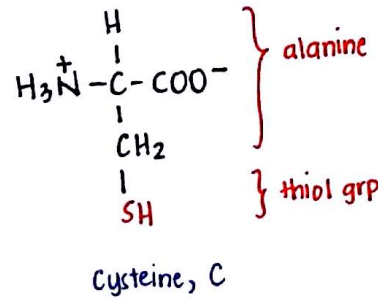 H
H₃N⁺–C–COO⁻
CH₂
SH
} alanine
} thiol grp
cysteine, C